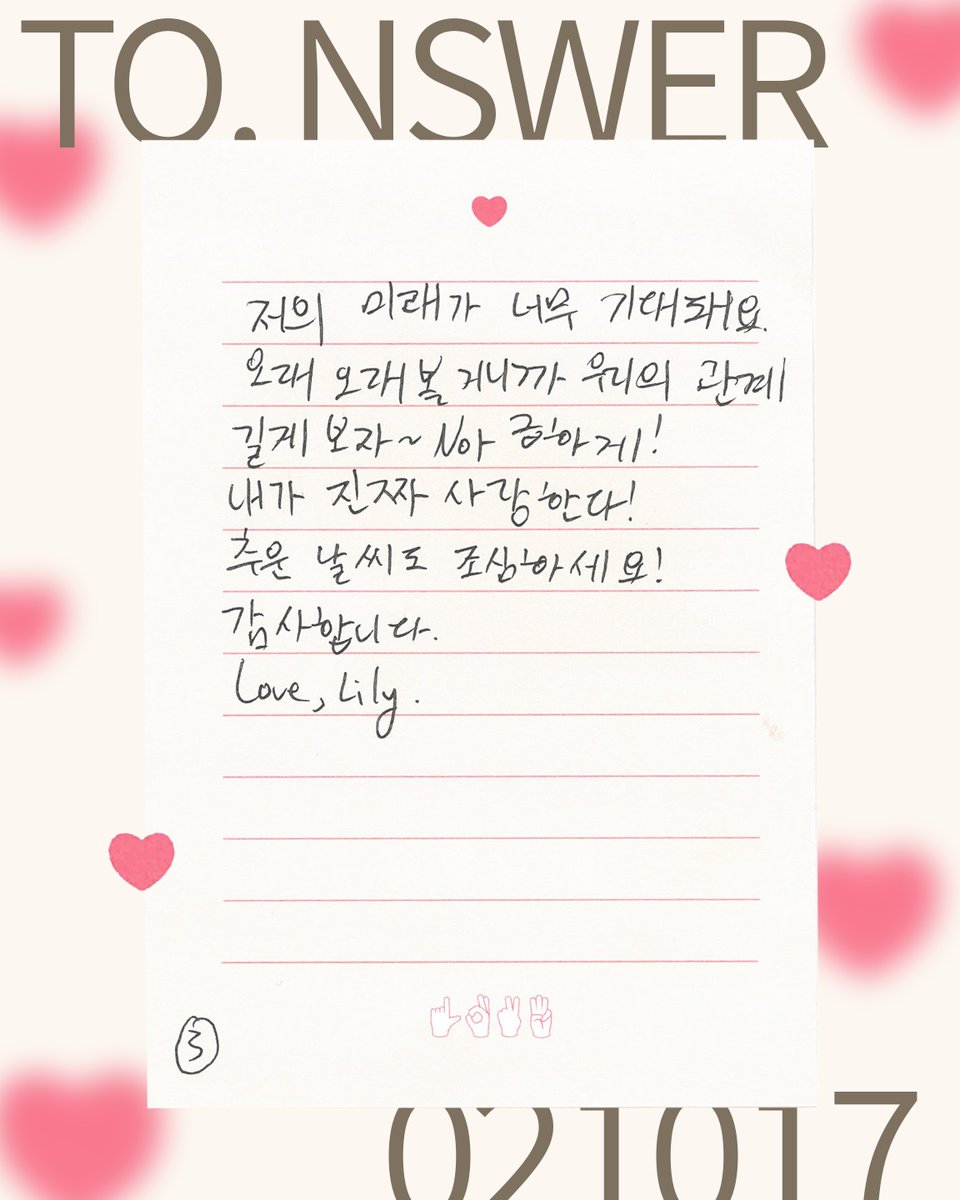 TO. NSWER
저의 미래가 너무 기대돼요.
오래 오래 볼 거니까 우리의 관계
길게 보자~ No 급하게!
내가 진짜 사랑한다!
추운 날씨도 조심하세요!
감사합니다.
Love, Lily.
3
021017